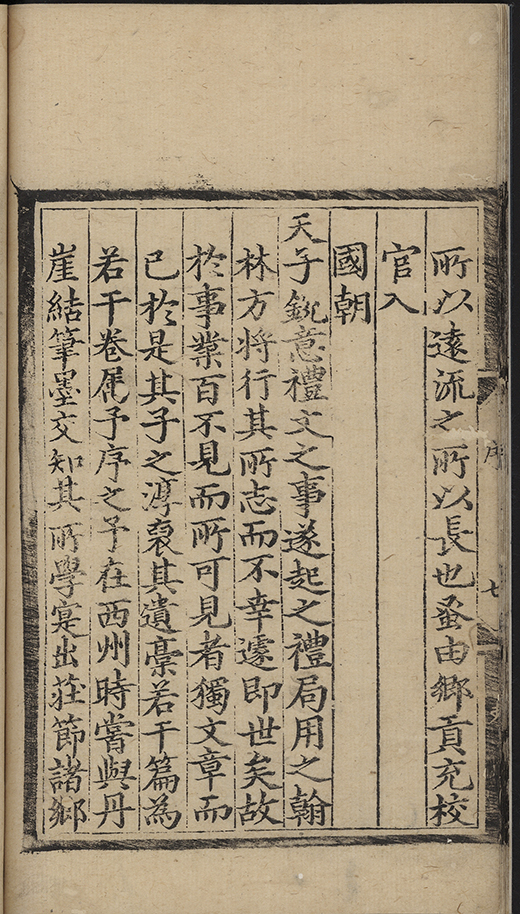 所以遠流之所以長也蚤由鄉貢充校
官入
國朝
天子銳意禮文之事遂起之禮局用之翰
林方將行其所志而不幸遽即世矣故
於事業百不見而所可見者獨文章而
已於是其子之滹裒其遺稾若干篇為
若干卷屬予序之予在西州時嘗與丹
崖結筆墨交知其所學寔出莊節諸鄉
序
七